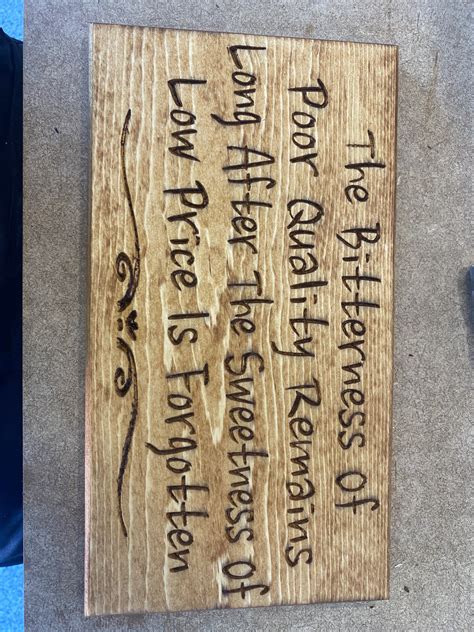 The Bitterness of
Poor Quality Remains
Long After The Sweetness of
Low Price Is Forgotten